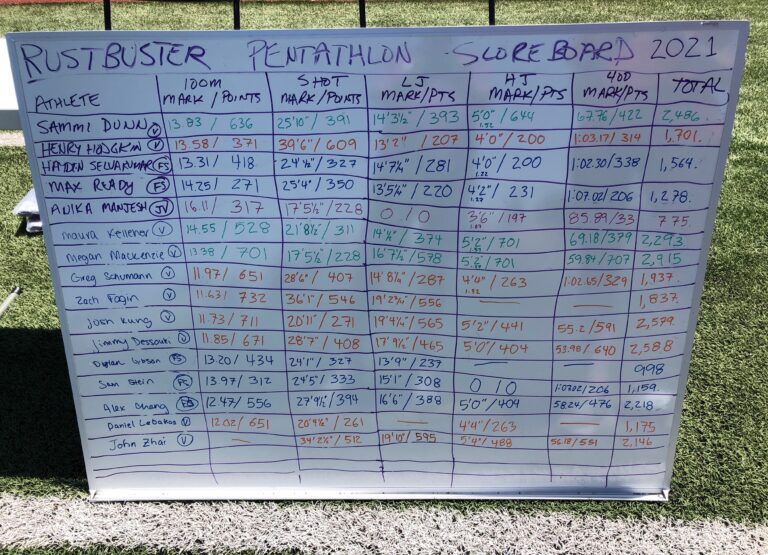 RUSTBUSTER PENTATHLON SCOREBOARD 2021
ATHLETE 100M MARK / POINTS SHOT MARK/POINTS LJ MARK/PTS HJ MARK/PTS 400 MARK/PTS TOTAL
SAMMI DUNN V 13.83 / 636 25'10" / 391 14'3½" / 393 5'0" / 644 1.52 67.76 / 422 2,486.
HENRY HODGKIN V 13.58 / 371 39'6" / 609 13'2" / 207 4'0" / 200 1:03.17 / 314 1,701.
HAYDEN FS 13.31 / 418 24'1½" / 327 14'7¼" / 281 4'0" / 200 1.22 1:02.30 / 338 1,564.
MAX READY FS 14.25 / 271 25'4" / 350 13'5¼" / 220 4'2" / 231 1.27 1:07.02 / 206 1,278.
ANIKA MANJESH JV 16.11 / 317 17'5½" / 228 0 / 0 3'6" / 197 85.89 / 33 775.
Maura Kelleher V 14.55 / 528 21'8½" / 311 / 374 5'2" / 701 69.18 / 379 2,293.
Megan Mackenzie V 13.38 / 701 17'5½" / 228 16'7½" / 578 5'2" / 701 59.84 / 707 2,915
Greg Schumann V 11.97 / 651 28'6" / 407 14'8¼" / 287 4'4" / 263 1.32 1:02.65 / 329 1,937.
Zach Fagin V 11.63 / 732 36'1" / 546 19'2¾" / 556 — — 1,837.
Josh Kung V 11.73 / 711 20'11" / 271 19'4¼" / 565 5'2" / 441 55.2 / 591 2,579
Jimmy Dessouki V 11.85 / 671 28'7" / 408 17'9¼" / 465 5'0" / 404 53.98 / 640 2,588
Dylan Gibson FS 13.20 / 434 24'1" / 327 13'9" / 237 — — 998
Sam Stein FS 13.97 / 312 24'5" / 333 15'1" / 308 0 / 0 1:07.02 / 206 1,159.
Alex FS 12.47 / 556 27'9½" / 394 16'6" / 388 5'0" / 404 58.24 / 476 2,218.
Daniel V 12.02 / 651 20'4½" / 261 — 4'4" / 263 — 1,175
John Zhai V — 34'2½" / 512 19'10" / 595 5'4" / 488 56.18 / 551 2,146